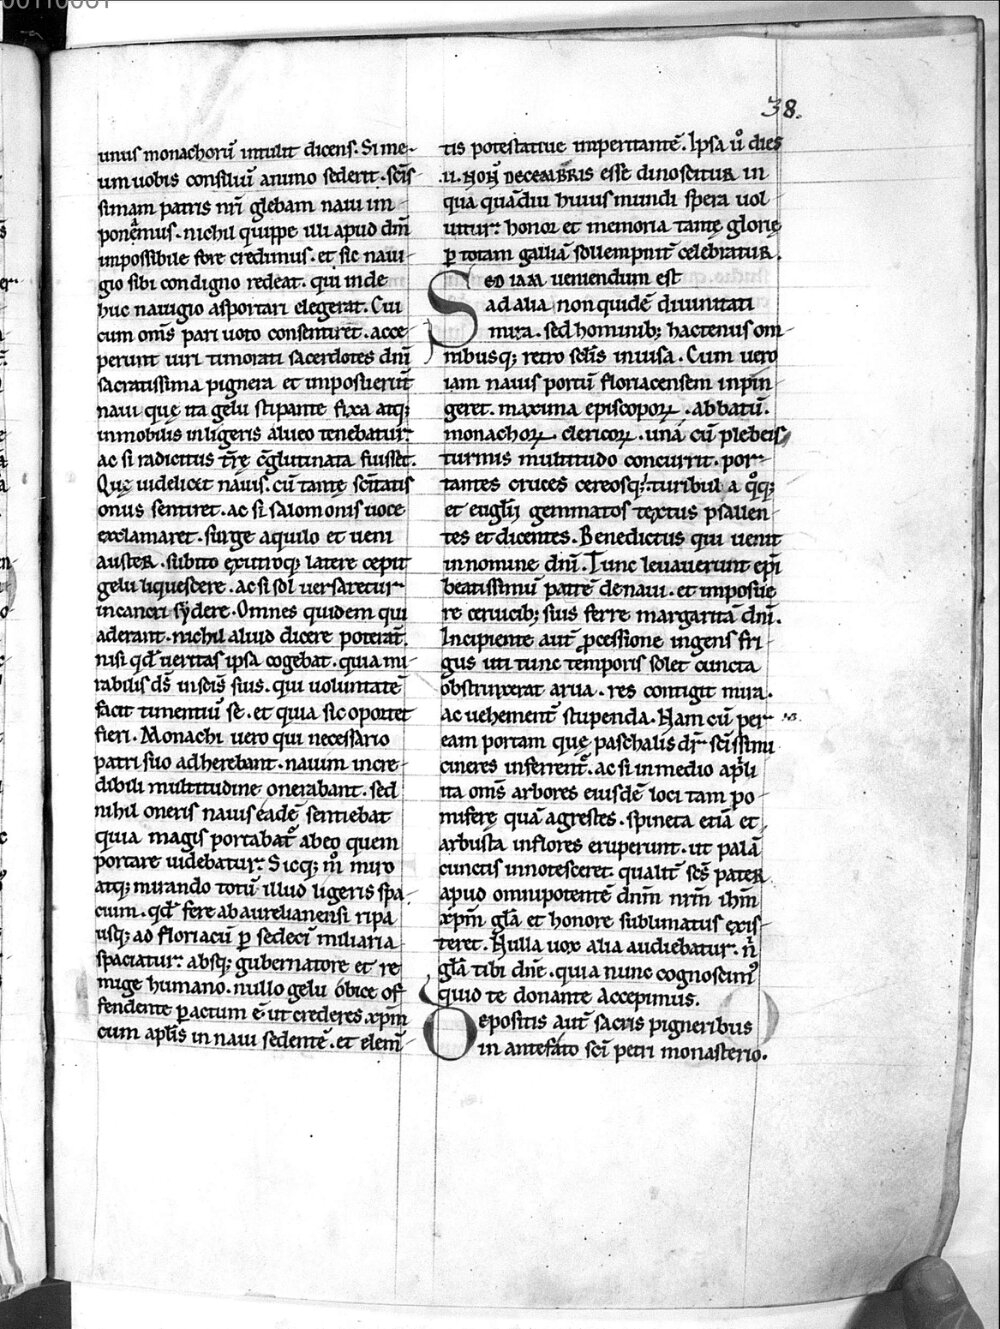 38.
unus monachorū intulit dicens. Si me-
um uobis consiliū animo sederit. scīs
simam patris nr̄i glebam naui im
ponemus. nichil quippe illi apud dn̄m
impossibile fore credimus. et sic naui-
gio sibi condigno redeat. qui inde
huc nauigio asportari elegerat. Cui
cum om̄s pari uoto consentiret. acce
perunt uiri timorati sacerdotes dn̄i
sacratissima pignera et imposuerūt
naui quę ita gelu stipante fixa atq;
inmobilis in ligeris alueo tenebatur
ac si radicitus tr̄ę cōglutinata fuisset.
Quę uidelicet nauis. cū tantę scītatis
onus sentiret. ac si salomonis uoce
exclamaret. surge aquilo et ueni
auster. subito ex utroq; latere cepit
gelu liquescere. ac si sol uersaretur
in cancri sydere. Omnes quidem qui
aderant. nichil aliud dicere poterāt.
nisi qd̄ ueritas ipsa cogebat. quia mi-
rabilis ds̄ in scīs suis. qui uoluntatē
facit timentiū se. et quia sic oportet
fieri. Monachi uero qui necessario
patri suo adherebant. nauim incre-
dibili multitudine onerabant. sed
nihil oneris nauis eadē sentiebat
quia magis portabat᷑ ab eo quem
portare uidebatur. Sicq; m̊ miro
atq; mirando totū illud ligeris spa
cium. qd̄ fere ab aurelianensi ripa
usq; ad floriacū ꝑ sedecī miliaria
spaciatur. absq; gubernatore et re
mige humano. nullo gelu obice of
fendente ꝑactum ē. ut crederes xp̄m
cum ap̄lis in naui sedentē. et elem̄
tis potestatiue imperitantē. Ipsa ů dies
.ii. NOÑ DECEMBRIS esse dinoscitur in
qua quādiu huius mundi spera uol
uitur. honor et memoria tantę glorię
ꝑ totam galliā sollempnit᷑ celebratur.
Sed iam ueniendum est
ad alia non quidē diuinitati
mira. sed hominib; hactenus om
nibusq; retro sclīs inuisa. Cum uero
iam nauis portū floriacensem inpin
geret. maxima episcoporꝝ. abbatū.
monachorꝝ. clericorꝝ. unā cū plebeis
turmis multitudo concurrit. por
tantes cruces cereosq; turibula q̊q;
et euglīi gemmatos textus psallen
tes et dicentes. Benedictus qui uenit
in nomine dn̄i. Tunc leuauerunt ep̄i
beatissimū patrē de naui. et imposue
re ceruicib; suis ferre margaritā dn̄i.
Incipiente aut̄ ꝓcessione ingens fri
gus uti tunc temporis solet cuncta
obstruxerat arua. res contigit mira.
ac uehement᷑ stupenda. Nam cū per
eam portam quę paschalis dr̄ scīssimi
cineres inferrent᷑. ac si in medio ap̄li
ita om̄s arbores eiusdē loci tam po
miferę quā agrestes. spineta etiā et
arbusta in flores eruperunt. ut palā
cunctis innotesceret. qualit᷑ scs̄ pater
apud omnipotentē dnm̄ nrm̄ ihm̄
xpm̄ glā et honore sublimatus exis
teret. Nulla uox alia audiebatur. n̄
glā tibi dn̄e. quia nunc cognoscim᷒
quid te donante accepimus.
Depositis aut̄ sacris pigneribus
in antefato scī petri monasterio.